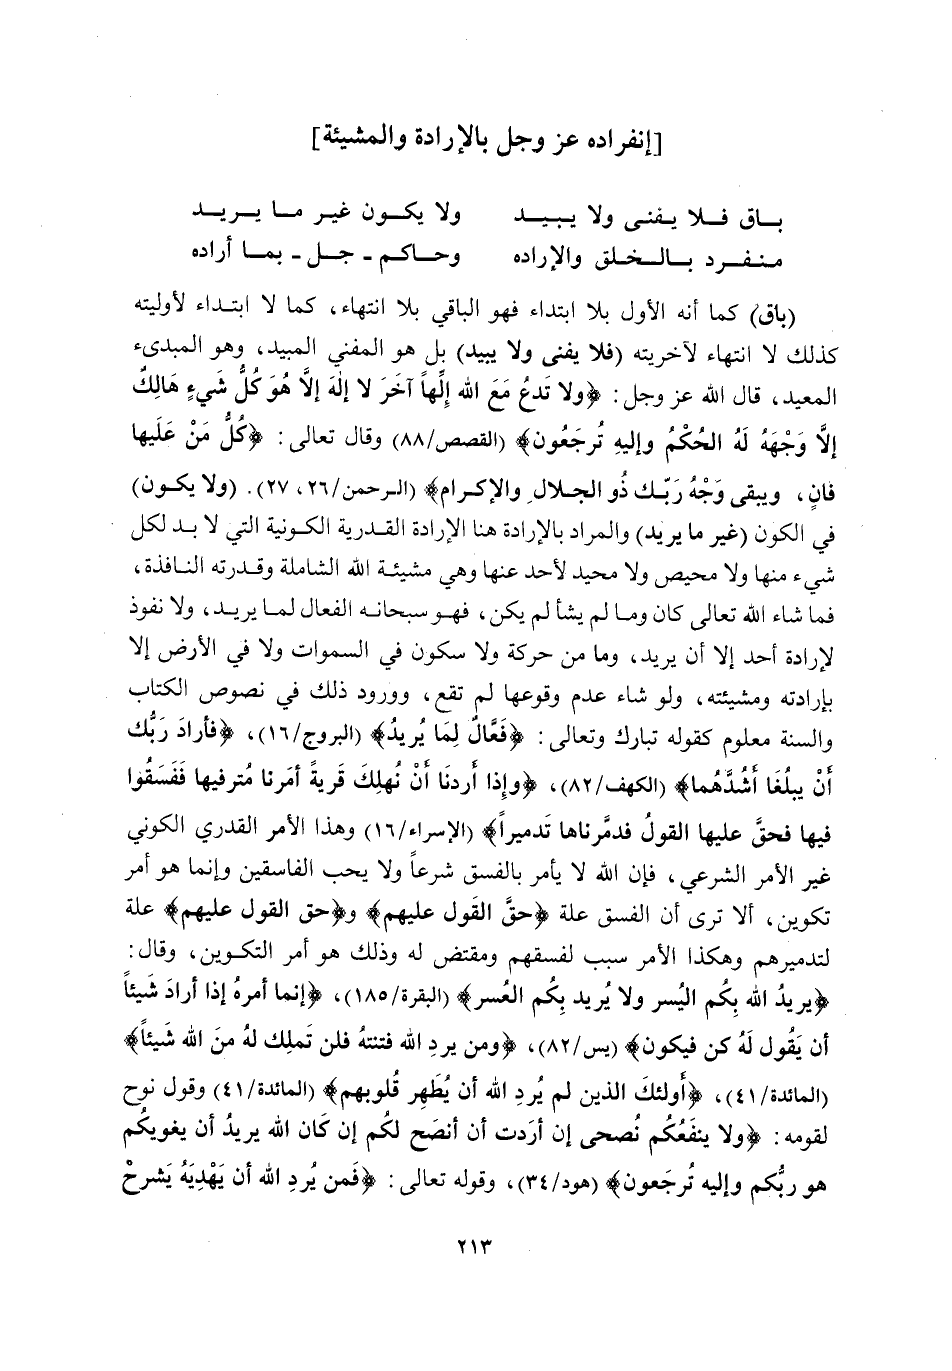 [إنفراده عز وجل بالإرادة والمشيئة]
بـاق فـلا يـفنـى ولا يـبيـد ولا يكـون غيـر مـا يـريـد
منـفـرد بـالـخـلق والإراده وحـاكـم ـ جـل ـ بمـا أراده
(باق) كما أنه الأول بلا ابتداء فهو الباقي بلا انتهاء، كما لا ابتـداء لأوليته
كذلك لا انتهاء لآخريته (فلا يفنى ولا يبيد) بل هو المفني المبيد، وهو المبدىء
المعيد، قال الله عز وجل: ﴿ولا تَدعُ مَعَ الله إلَهاً آخَرَ لا إلٰهَ إلَّا هُوَ كُلُّ شَيءٍ هَالِكٌ
إلَّا وَجْهَهُ لَهُ الحُكْمُ وإليهِ تُرجَعُون﴾ (القصص/٨٨) وقال تعالى: ﴿كُلُّ مَنْ عَلَيها
فانٍ، ويبقى وَجْهُ رَبّـك ذُو الجـلالِ والإكـرام﴾ (الرحمن/٢٦، ٢٧). (ولا يكـون)
في الكون (غير ما يريد) والمراد بالإرادة هنا الإرادة القـدرية الكـونية التي لا بـد لكل
شيء منها ولا محيص ولا محيد لأحد عنها وهي مشيئـة الله الشاملة وقـدرته النـافذة،
فما شاء الله تعالى كان ومـا لم يشأ لم يكن، فهـو سبحانـه الفعال لمـا يريـد، ولا نفوذ
لإرادة أحد إلا أن يريد، وما من حركة ولا سكون في السموات ولا في الأرض إلا
بإرادته ومشيئته، ولو شاء عدم وقوعها لم تقع، وورود ذلك في نصوص الكتاب
والسنة معلوم كقوله تبارك وتعالى: ﴿فَعَّالٌ لِمَا يُريدُ﴾ (البروج/١٦)، ﴿فأرادَ رَبُّك
أَنْ يبلُغَا أشُدَّهُما﴾ (الكهف/٨٢)، ﴿وإِذا أردنَا أَنْ نُهلِكَ قَريةً أمَرنا مُترفيها فَفَسَقُوا
فيها فحقَّ عليها القولُ فدمَّرناها تَدميراً﴾ (الإسراء/١٦) وهذا الأمر القدري الكوني
غير الأمر الشرعي، فإن الله لا يأمر بالفسق شرعاً ولا يحب الفاسقين وإنما هو أمر
تكوين، ألا ترى أن الفسق علة ﴿حقَّ القَول عليهم﴾ و﴿حق القول عليهم﴾ علة
لتدميرهم وهكذا الأمر سبب لفسقهم ومقتض له وذلك هو أمر التكـوين، وقال:
﴿يريدُ الله بِكُم اليُسر ولا يُريد بِكُم العُسر﴾ (البقرة/١٨٥)، ﴿إنما أمرهُ إذا أرادَ شَيئاً
أن يَقُول لَهُ كن فيكون﴾ (يس/٨٢)، ﴿ومن يردِ الله فتنتهُ فلن تَملِك لهُ منَ الله شَيئاً﴾
(المائدة/٤١)، ﴿أُولئكَ الذين لم يُردِ الله أن يُطَهِر قُلوبهم﴾ (المائدة/٤١) وقول نوح
لقومه: ﴿ولا ينفَعُكُم نُصحى إن أرَدت أن أنصَح لكُم إن كَان الله يريدُ أن يغويكُم
هو ربُّكم وإليه تُرجَعون﴾ (هود/٣٤)، وقوله تعالى: ﴿فَمن يُردِ الله أن يَهْدِيَهُ يَشرحْ
٢١٣